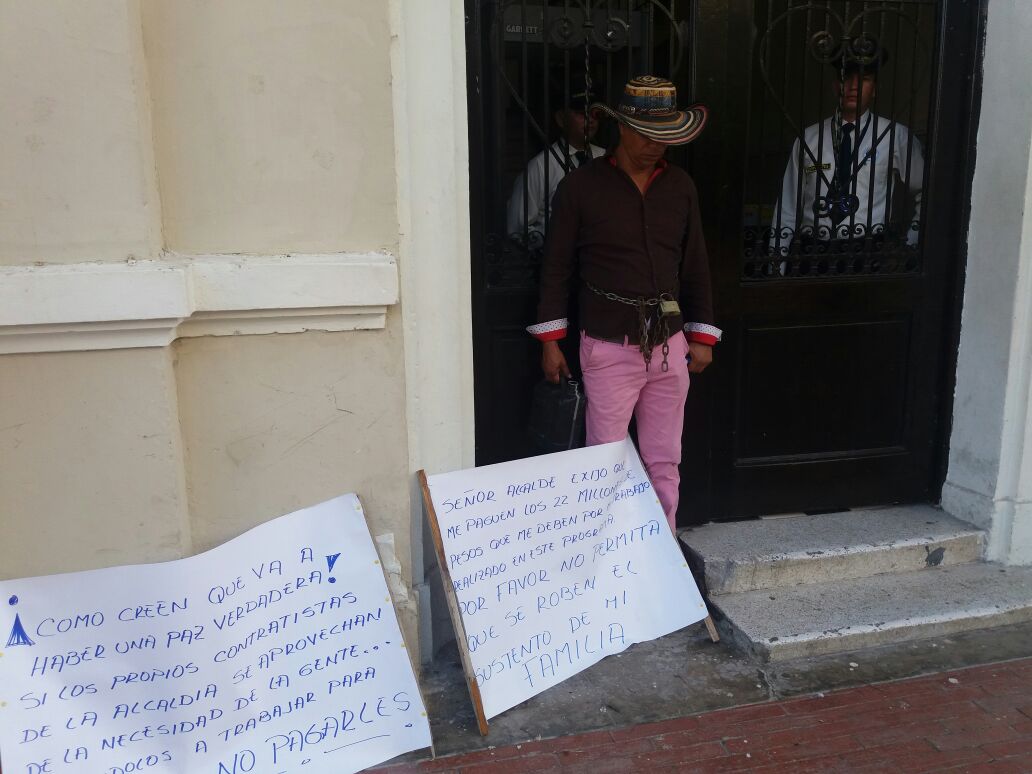 ¡COMO CREEN QUE VA A
HABER UNA PAZ VERDADERA!
SI LOS PROPIOS CONTRATISTAS
DE LA ALCALDIA SE APROVECHAN
DE LA NECESIDAD DE LA GENTE...
A TRABAJAR PARA
NO PAGARLES
SEÑOR ALCALDE EXIJO QUE
ME PAGUEN LOS 22 MILLONES DE
PESOS QUE ME DEBEN POR TRABAJO
REALIZADO EN ESTE PROGRAMA
POR FAVOR NO PERMITA
QUE SE ROBEN EL
SUSTENTO DE MI
FAMILIA